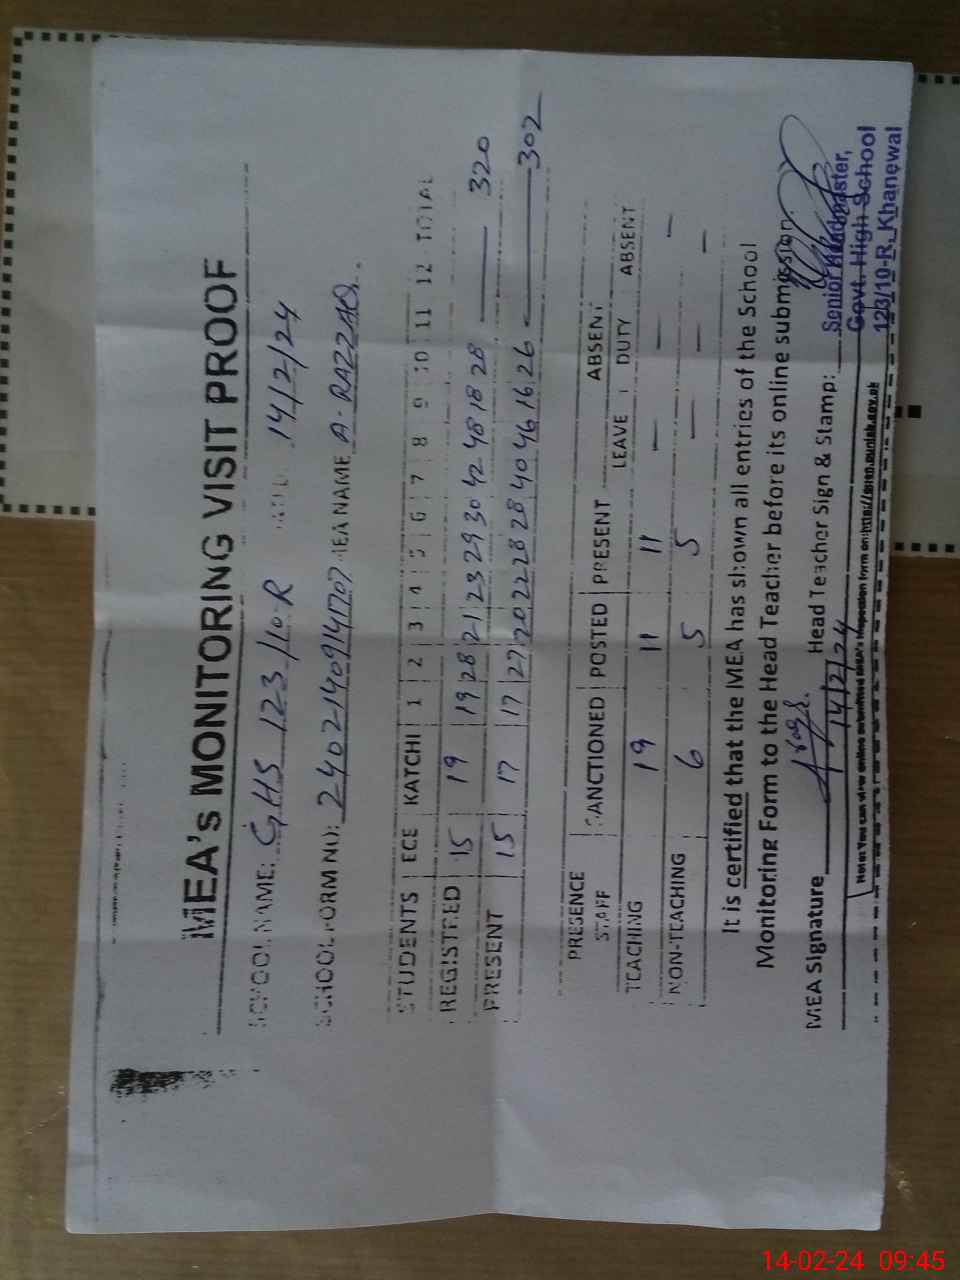 MEA's MONITORING VISIT PROOF
SCHOOL NAME: GHS 123/10-R 14/2/24
SCHOOL FORM NO: MEA NAME A. RAZZAQ
STUDENTS ECE KATCHI 1 2 3 4 5 6 7 8 9 10 11 12 TOTAL
REGISTRED 15 19 19 28 21 23 29 30 42 48 18 28 — 320
PRESENT 15 17 17 27 20 22 28 28 40 46 16 26 — 302
PRESENCE
STAFF SANCTIONED POSTED PRESENT LEAVE ABSENT DUTY ABSENT
TEACHING 19 11 11 — — —
NON-TEACHING 6 5 5 — — —
It is certified that the MEA has shown all entries of the School
Monitoring Form to the Head Teacher before its online submission
MEA Signature Head Teacher Sign & Stamp:
14/2/24
Senior Headmaster,
Govt. High School
123/10-R, Khanewal
Note: You can view online submitted MEA's Inspection form on:
14-02-24 09:45